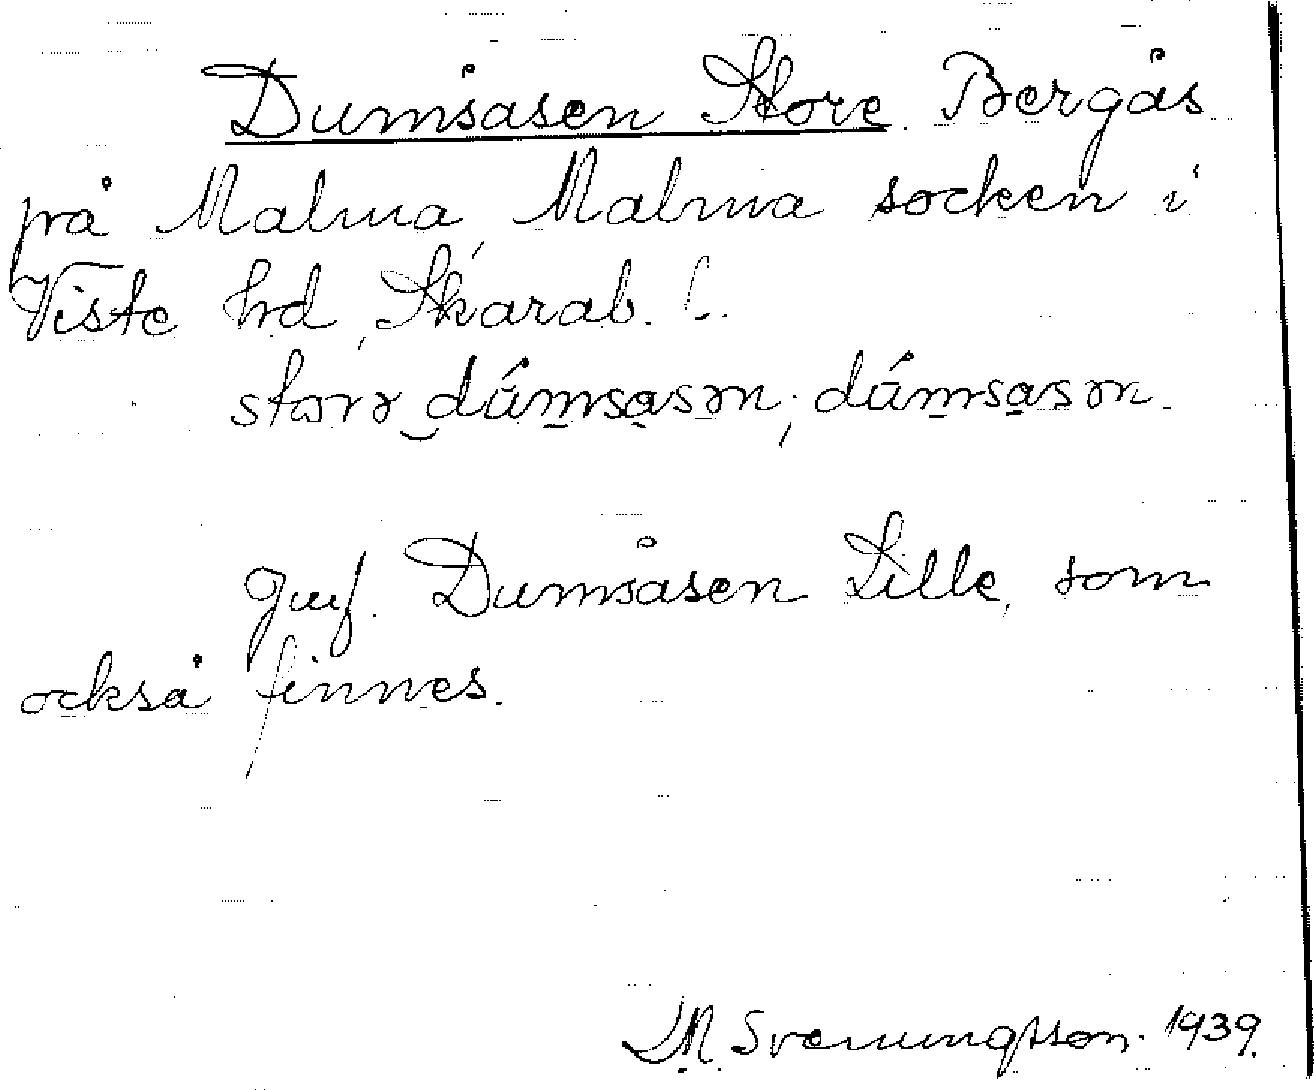 Dumsåsen Store. Bergås
på Malma, Malma socken i
Viste hd, Skarab. l.
storə dúmsasən; dúmsasən.
Jmf. Dumsåsen Lille, som
också finnes.
LM Svenungsson. 1939.